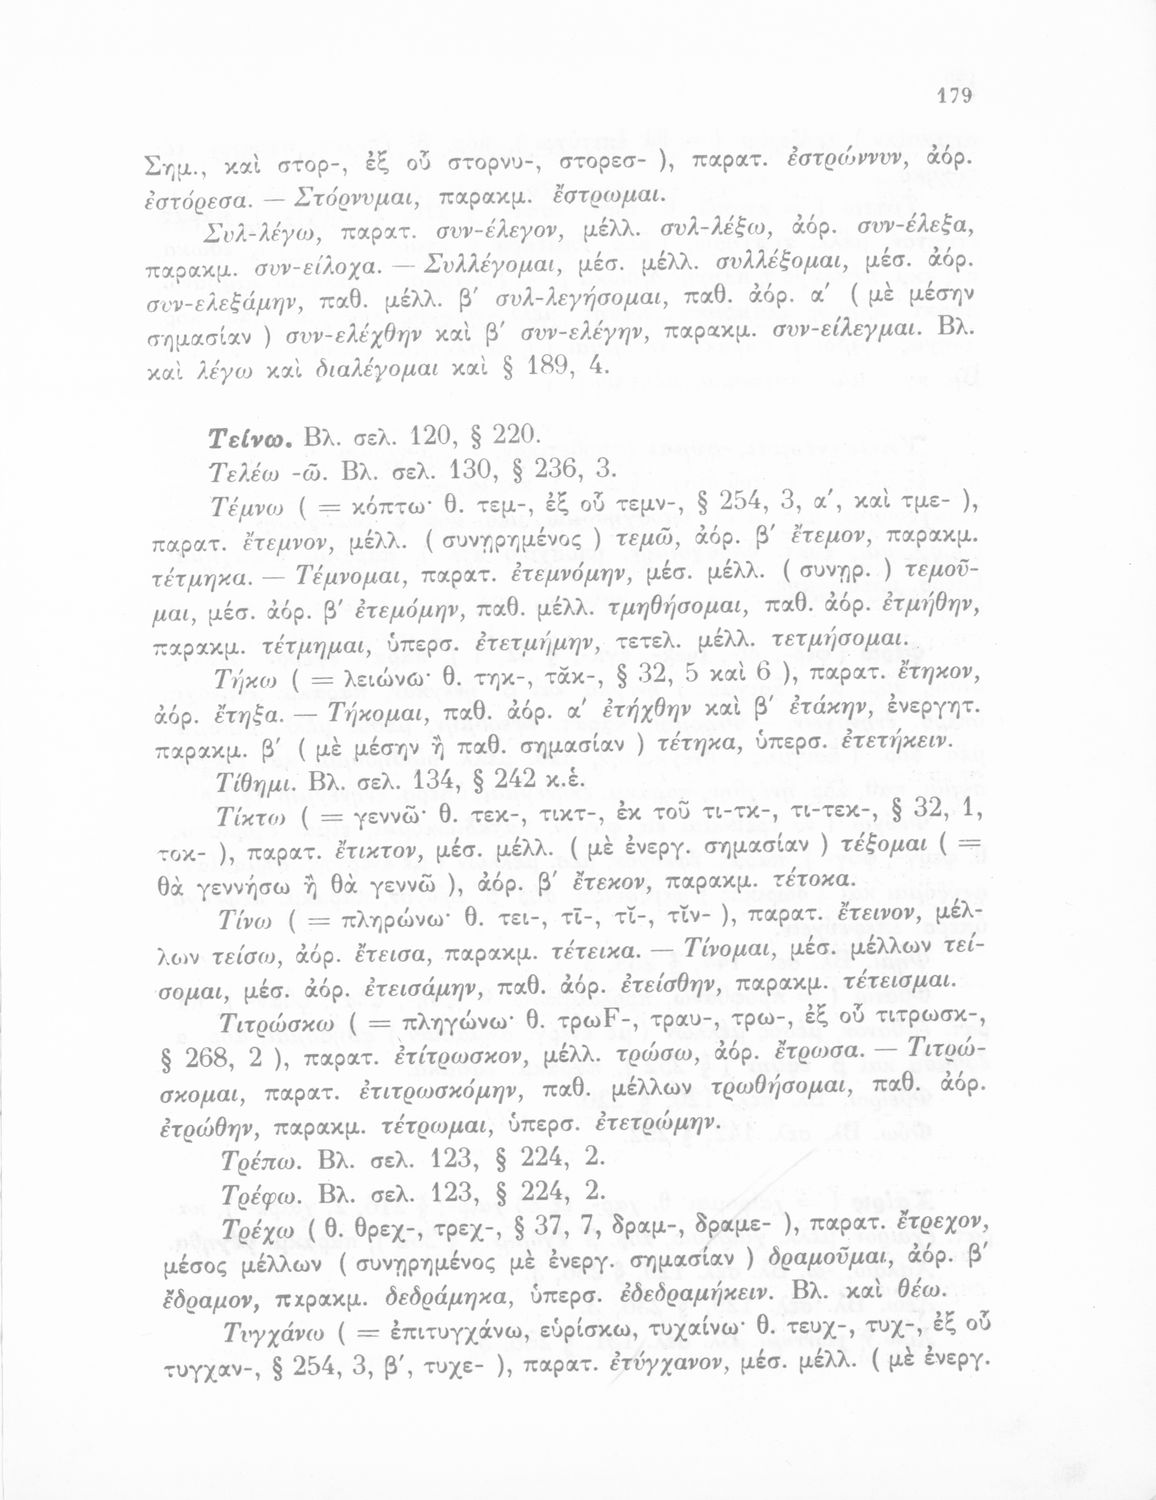 179
Σημ., καὶ στορ-, ἐξ οὗ στορνυ-, στορεσ- ), παρατ. ἐστρώννυν, ἀόρ.
ἐστόρεσα. — Στόρνυμαι, παρακμ. ἔστρωμαι.
Συλ-λέγω, παρατ. συν-έλεγον, μέλλ. συλ-λέξω, ἀόρ. συν-έλεξα,
παρακμ. συν-είλοχα. — Συλλέγομαι, μέσ. μέλλ. συλλέξομαι, μέσ. ἀόρ.
συν-ελεξάμην, παθ. μέλλ. β′ συλ-λεγήσομαι, παθ. ἀόρ. α′ ( μὲ μέσην
σημασίαν ) συν-ελέχθην καὶ β′ συν-ελέγην, παρακμ. συν-είλεγμαι. Βλ.
καὶ λέγω καὶ διαλέγομαι καὶ § 189, 4.
Τείνω. Βλ. σελ. 120, § 220.
Τελέω -ῶ. Βλ. σελ. 130, § 236, 3.
Τέμνω ( = κόπτω· θ. τεμ-, ἐξ οὗ τεμν-, § 254, 3, α′, καὶ τμε- ),
παρατ. ἔτεμνον, μέλλ. ( συνῃρημένος ) τεμῶ, ἀόρ. β′ ἔτεμον, παρακμ.
τέτμηκα. — Τέμνομαι, παρατ. ἐτεμνόμην, μέσ. μέλλ. ( συνῃρ. ) τεμοῦ-
μαι, μέσ. ἀόρ. β′ ἐτεμόμην, παθ. μέλλ. τμηθήσομαι, παθ. ἀόρ. ἐτμήθην,
παρακμ. τέτμημαι, ὑπερσ. ἐτετμήμην, τετελ. μέλλ. τετμήσομαι.
Τήκω ( = λειώνω· θ. τηκ-, τᾰκ-, § 32, 5 καὶ 6 ), παρατ. ἔτηκον,
ἀόρ. ἔτηξα. — Τήκομαι, παθ. ἀόρ. α′ ἐτήχθην καὶ β′ ἐτάκην, ἐνεργητ.
παρακμ. β′ ( μὲ μέσην ἢ παθ. σημασίαν ) τέτηκα, ὑπερσ. ἐτετήκειν.
Τίθημι. Βλ. σελ. 134, § 242 κ.ἑ.
Τίκτω ( = γεννῶ· θ. τεκ-, τικτ-, ἐκ τοῦ τι-τκ-, τι-τεκ-, § 32, 1,
τοκ- ), παρατ. ἔτικτον, μέσ. μέλλ. ( μὲ ἐνεργ. σημασίαν ) τέξομαι ( =
θὰ γεννήσω ἢ θὰ γεννῶ ), ἀόρ. β′ ἔτεκον, παρακμ. τέτοκα.
Τίνω ( = πληρώνω· θ. τει-, τῑ-, τῐ-, τῐν- ), παρατ. ἔτεινον, μέλ-
λων τείσω, ἀόρ. ἔτεισα, παρακμ. τέτεικα. — Τίνομαι, μέσ. μέλλων τεί-
σομαι, μέσ. ἀόρ. ἐτεισάμην, παθ. ἀόρ. ἐτείσθην, παρακμ. τέτεισμαι.
Τιτρώσκω ( = πληγώνω· θ. τρωF-, τραυ-, τρω-, ἐξ οὗ τιτρωσκ-,
§ 268, 2 ), παρατ. ἐτίτρωσκον, μέλλ. τρώσω, ἀόρ. ἔτρωσα. — Τιτρώ-
σκομαι, παρατ. ἐτιτρωσκόμην, παθ. μέλλων τρωθήσομαι, παθ. ἀόρ.
ἐτρώθην, παρακμ. τέτρωμαι, ὑπερσ. ἐτετρώμην.
Τρέπω. Βλ. σελ. 123, § 224, 2.
Τρέφω. Βλ. σελ. 123, § 224, 2.
Τρέχω ( θ. θρεχ-, τρεχ-, § 37, 7, δραμ-, δραμε- ), παρατ. ἔτρεχον,
μέσος μέλλων ( συνῃρημένος μὲ ἐνεργ. σημασίαν ) δραμοῦμαι, ἀόρ. β′
ἔδραμον, παρακμ. δεδράμηκα, ὑπερσ. ἐδεδραμήκειν. Βλ. καὶ θέω.
Τυγχάνω ( = ἐπιτυγχάνω, εὑρίσκω, τυχαίνω· θ. τευχ-, τυχ-, ἐξ οὗ
τυγχαν-, § 254, 3, β′, τυχε- ), παρατ. ἐτύγχανον, μέσ. μέλλ. ( μὲ ἐνεργ.